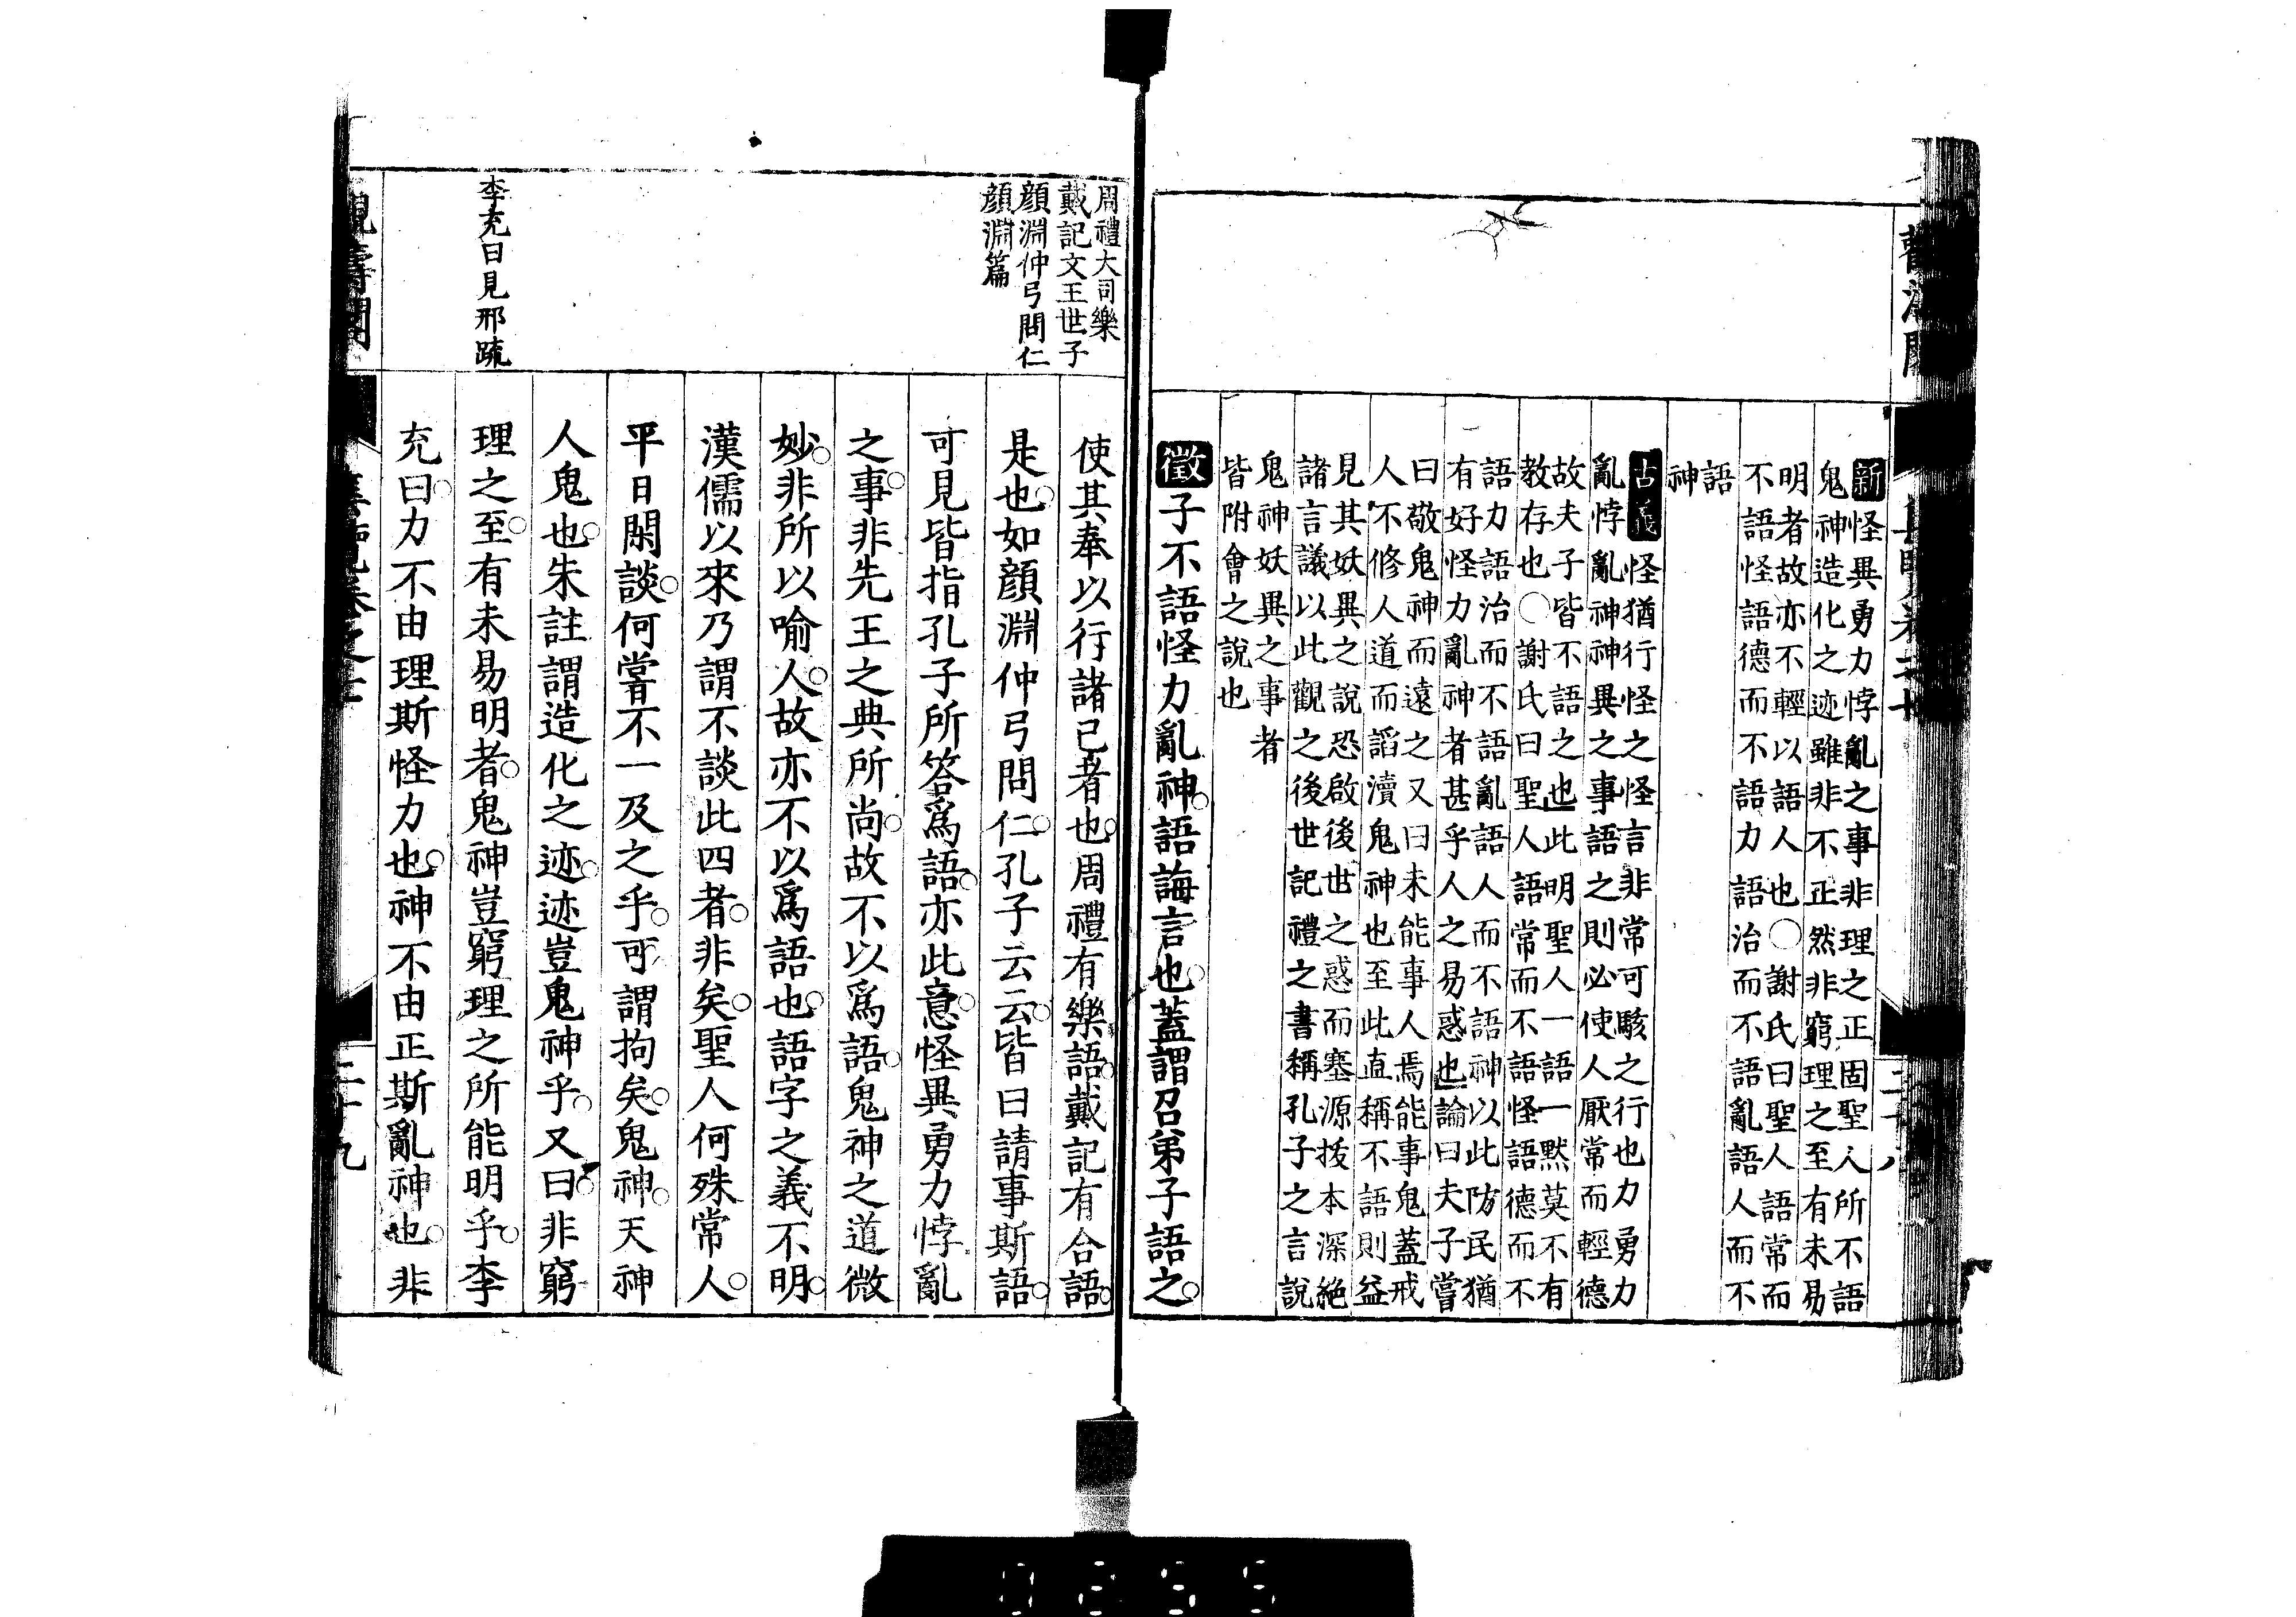 新怪異勇力悖亂之事非理之正固聖人所不語
鬼神造化之迹雖非不正然非窮理之至有未易
明者故亦不輕以語人也○謝氏曰聖人語常而
不語怪語德而不語力語治而不語亂語人而不
語
神
古義怪猶行怪之怪言非常可駭之行也力勇力
亂悖亂神神異之事語之則必使人厭常而輕德
故夫子皆不語之也此明聖人一語一黙莫不有
教存也○謝氏曰聖人語常而不語怪語德而不
語力語治而不語亂語人而不語神以此防民猶
有好怪力亂神者甚乎人之易惑也論曰夫子嘗
曰敬鬼神而遠之又曰未能事人焉能事鬼蓋戒
人不修人道而謟瀆鬼神也至此直稱不語則益
見其妖異之說恐啟後世之惑而塞源拔本深絶
諸言議以此觀之後世記禮之書稱孔子之言說
鬼神妖異之事者
皆附會之說也
徵子不語怪力亂神。語誨言也。蓋謂召弟子語之。
周禮大司樂
戴記文王世子
顏淵仲弓問仁
顏淵篇
使其奉以行諸己者也。周禮有樂語。戴記有合語。
是也。如顏淵仲弓問仁。孔子云云。皆曰請事斯語。
可見皆指孔子所答爲語。亦此意。怪異勇力悖亂
之事。非先王之典所尚。故不以爲語。鬼神之道微
妙。非所以喻人。故亦不以爲語也。語字之義不明。
漢儒以來乃謂不談此四者。非矣。聖人何殊常人。
平日閑談。何嘗不一及之乎。可謂拘矣。鬼神。天神
人鬼也。朱註謂造化之迹。迹豈鬼神乎。又曰。非窮
理之至。有未易明者。鬼神豈窮理之所能明乎。李
充曰。力不由理斯怪力也。神不由正斯亂神也。非
李充曰見邢疏
二十九
0255